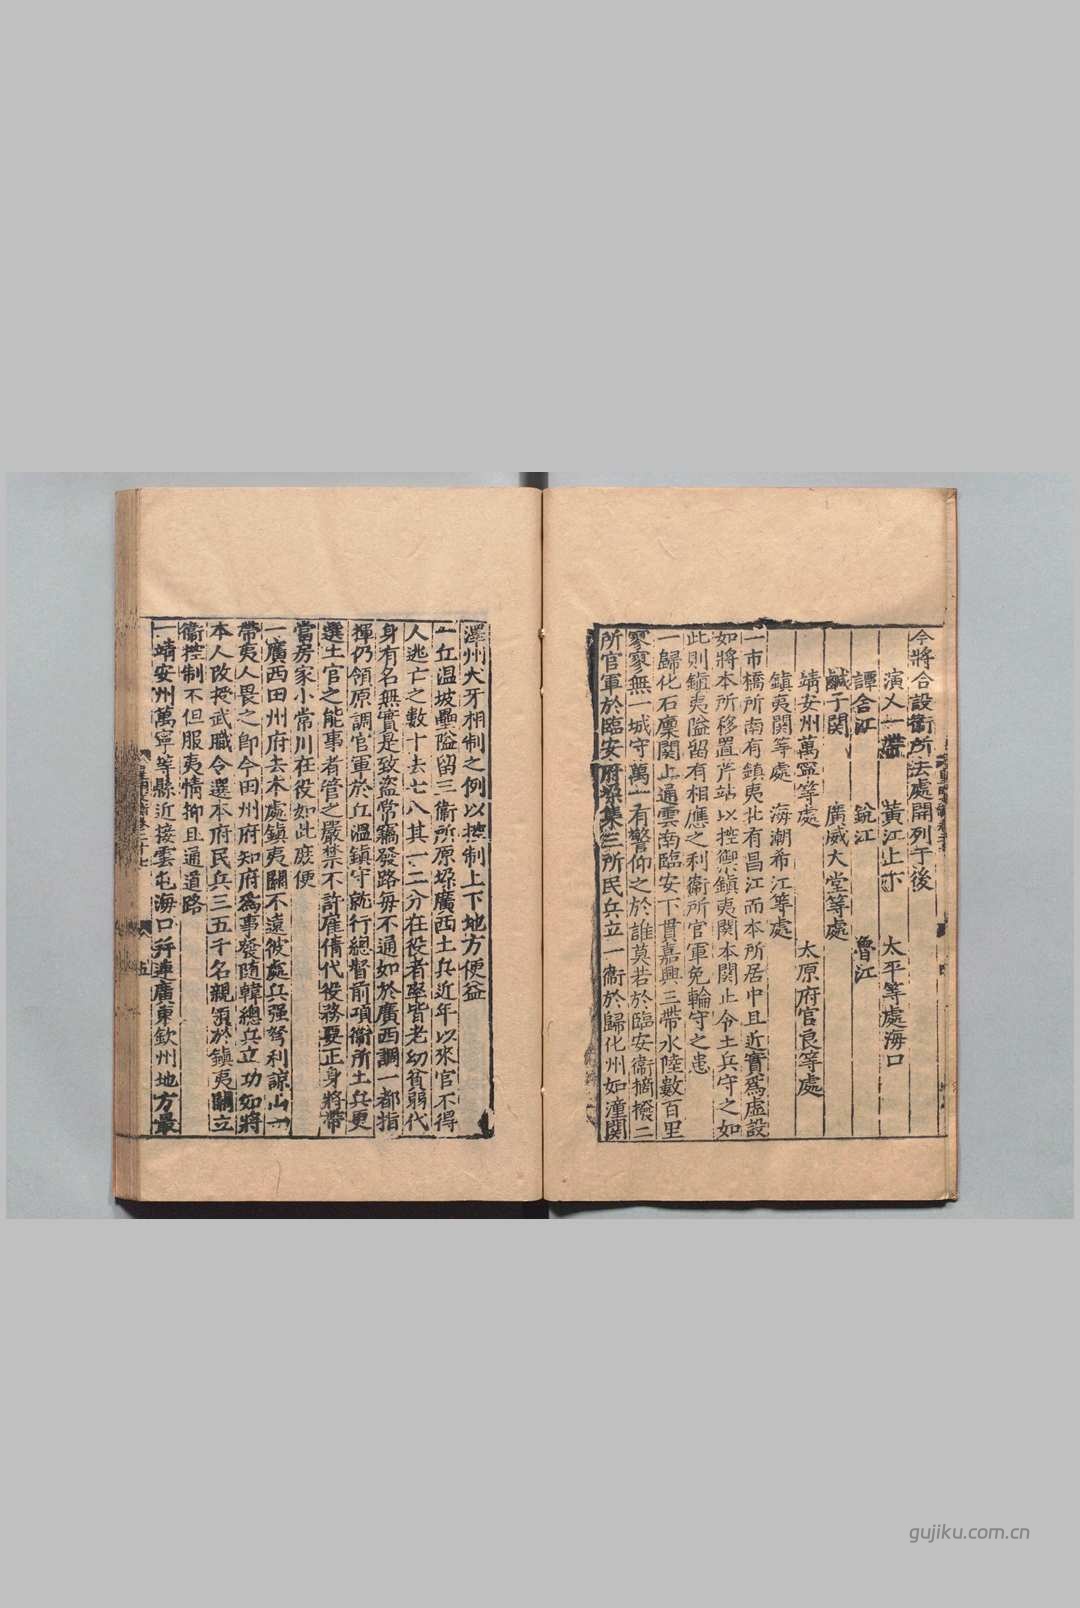 今將合設衛所法處開列于後
演乂一帶　黃江上下　太平等處海口
譚舍江　鋎江　魯江
鹹子関　廣威大堂等處
靖安州萬寧等處　太原府官良等處
鎮夷関等處　海潮希江等處
一市橋所南有鎮夷北有昌江而本所居中且近實爲虛設
如將本所移置芹站以控禦鎮夷関本関止令土兵守之如
此則鎮夷隘留有相應之利衛所官軍免輪守之患
一歸化石廩関上通雲南臨安下貫嘉興三帶水陸數百里
寥寥無一城守萬一有警仰之於誰莫若於臨安衛摘撥二
所官軍於臨安府垜集三所民兵立一衛於歸化州如潼関
澤州犬牙相制之例以控制上下地方便益
一丘温坡壘隘留三衛所原垜廣西土兵近年以來官不得
人逃亡之數十去七八其一二分在役者率皆老幼貧弱代
身有名無實是致盜常竊發路每不通如於廣西調一都指
揮仍領原調官軍於丘温鎮守就行總督前項衛所土兵更
選土官之能事者管之嚴禁不許雇倩代役務要正身將帶
當房家小常川在役如此庶便
一廣西田州府去本處鎮夷關不遠彼處兵强弩利諒山一
帶夷人畏之即今田州府知府爲事發隨韓總兵立功如將
本人改授武職令選本府民兵三五千名親領於鎮夷關立
衛控制不但服夷情抑且通道路
一靖安州萬寧等縣近接雲屯海口并連廣東欽州地方最
五
gujiku.com.cn